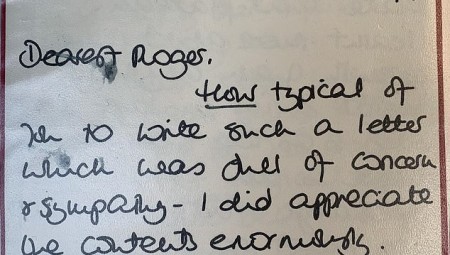 Dearest Roger.
How typical of
you to write such a letter
which was full of concern
& sympathy - I did appreciate
the contents enormously.